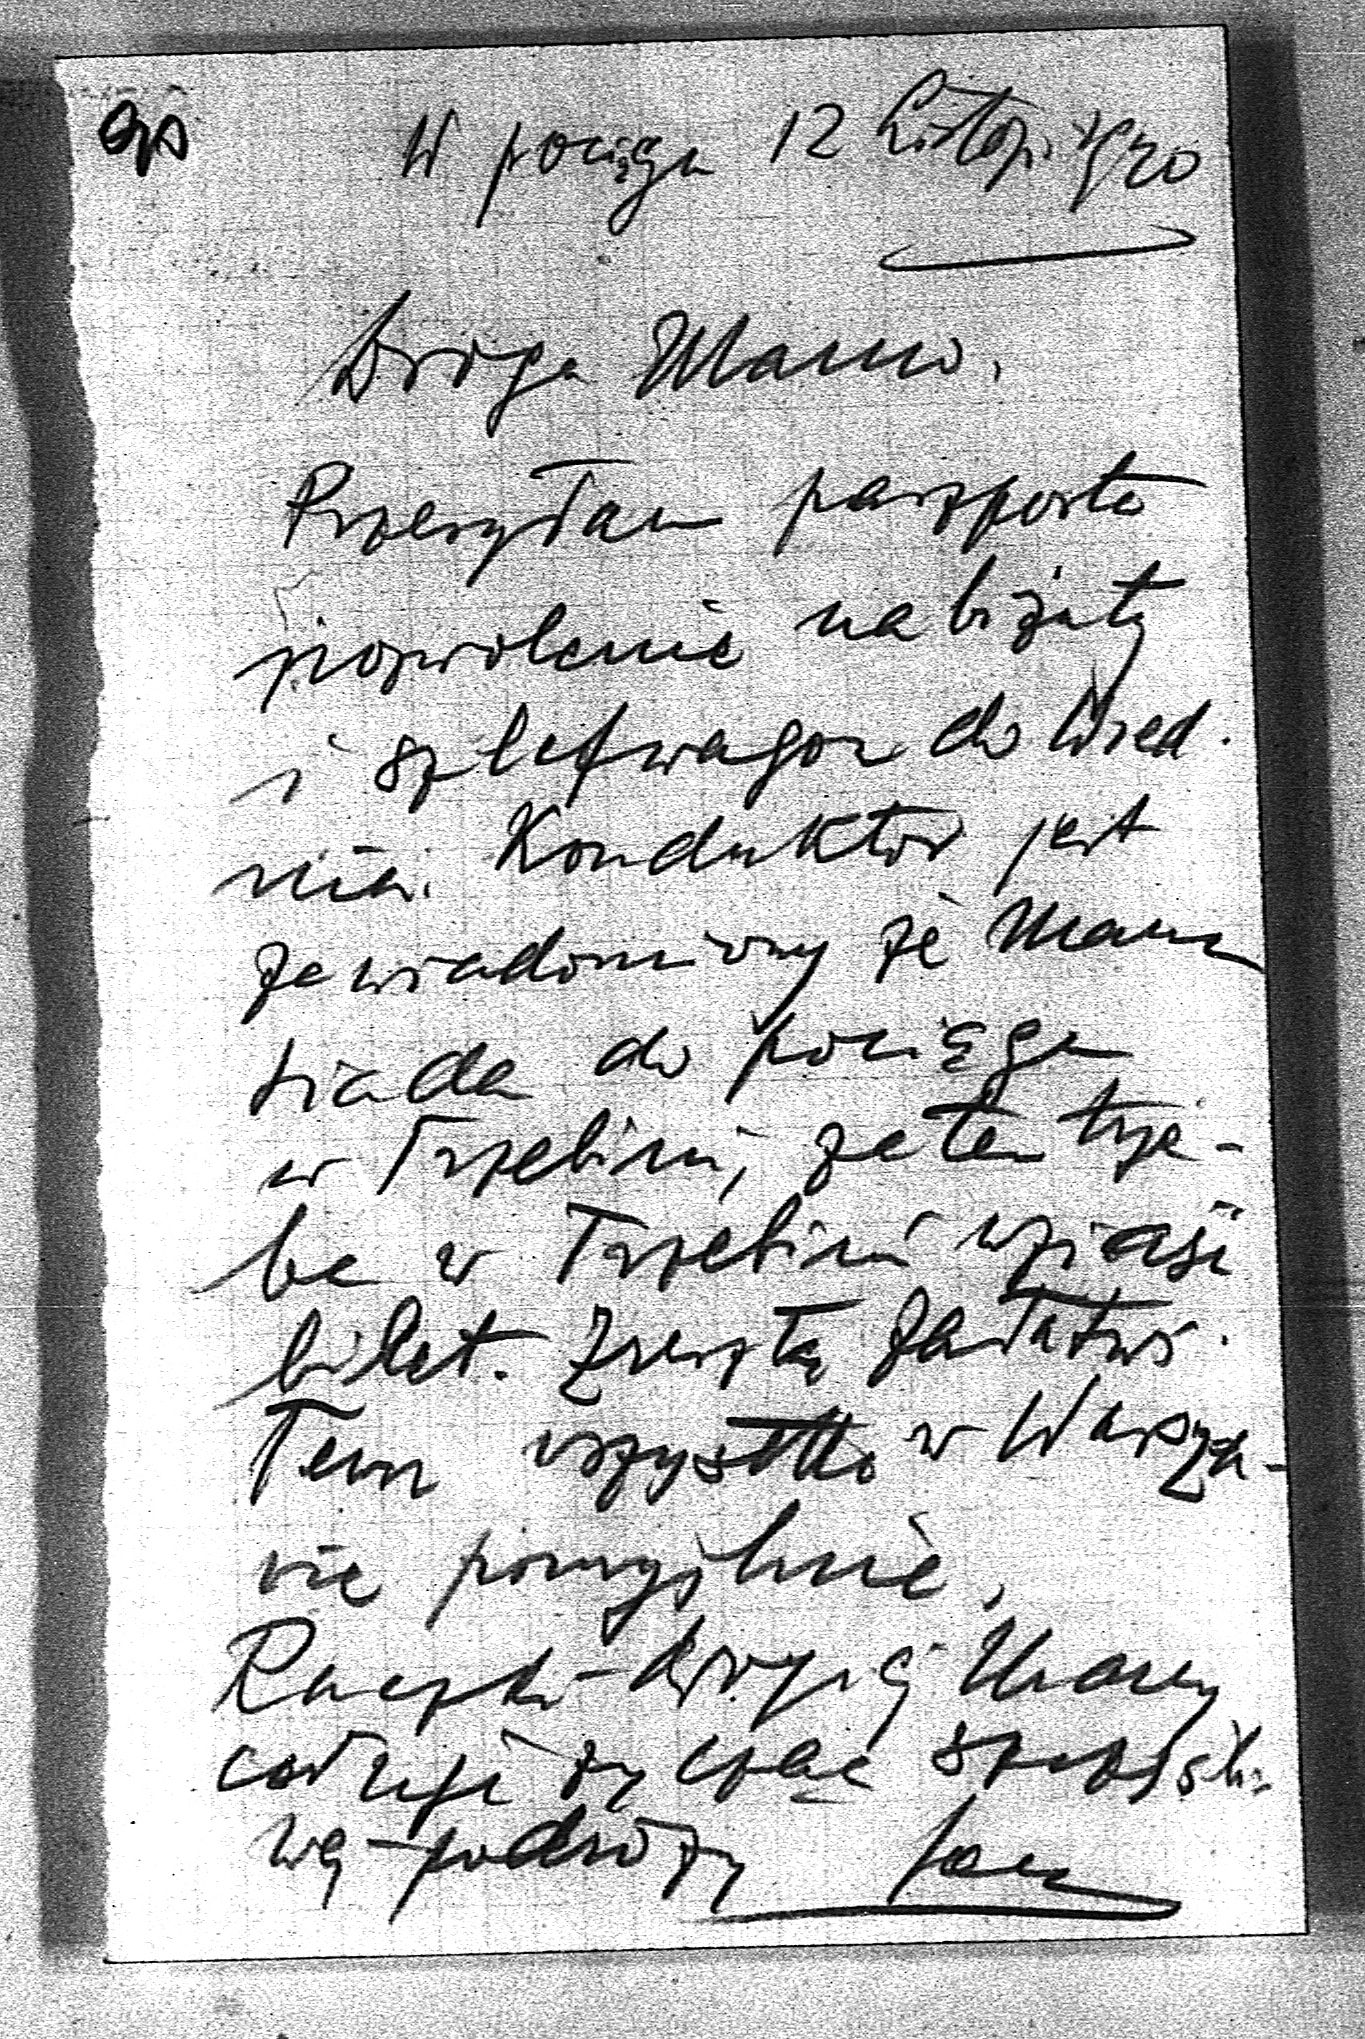 W pociągu 12 Listop. 1920
Droga Mamo,
Przesyłam paszporta
pozwolenie na biżuty
i szlafwagon do Wied.
nia. Konduktor jest
zawiadomiony że Mama
siada do pociągu
w Trzebini, zatem trze-
ba w Trzebini wziąść
bilet. Zresztą załatwi.
łem wszystko w Warsza-
wie pomyślnie.
Rączki drogiej Mamy
całuję życząc szczęśli-
wej podróży Jan